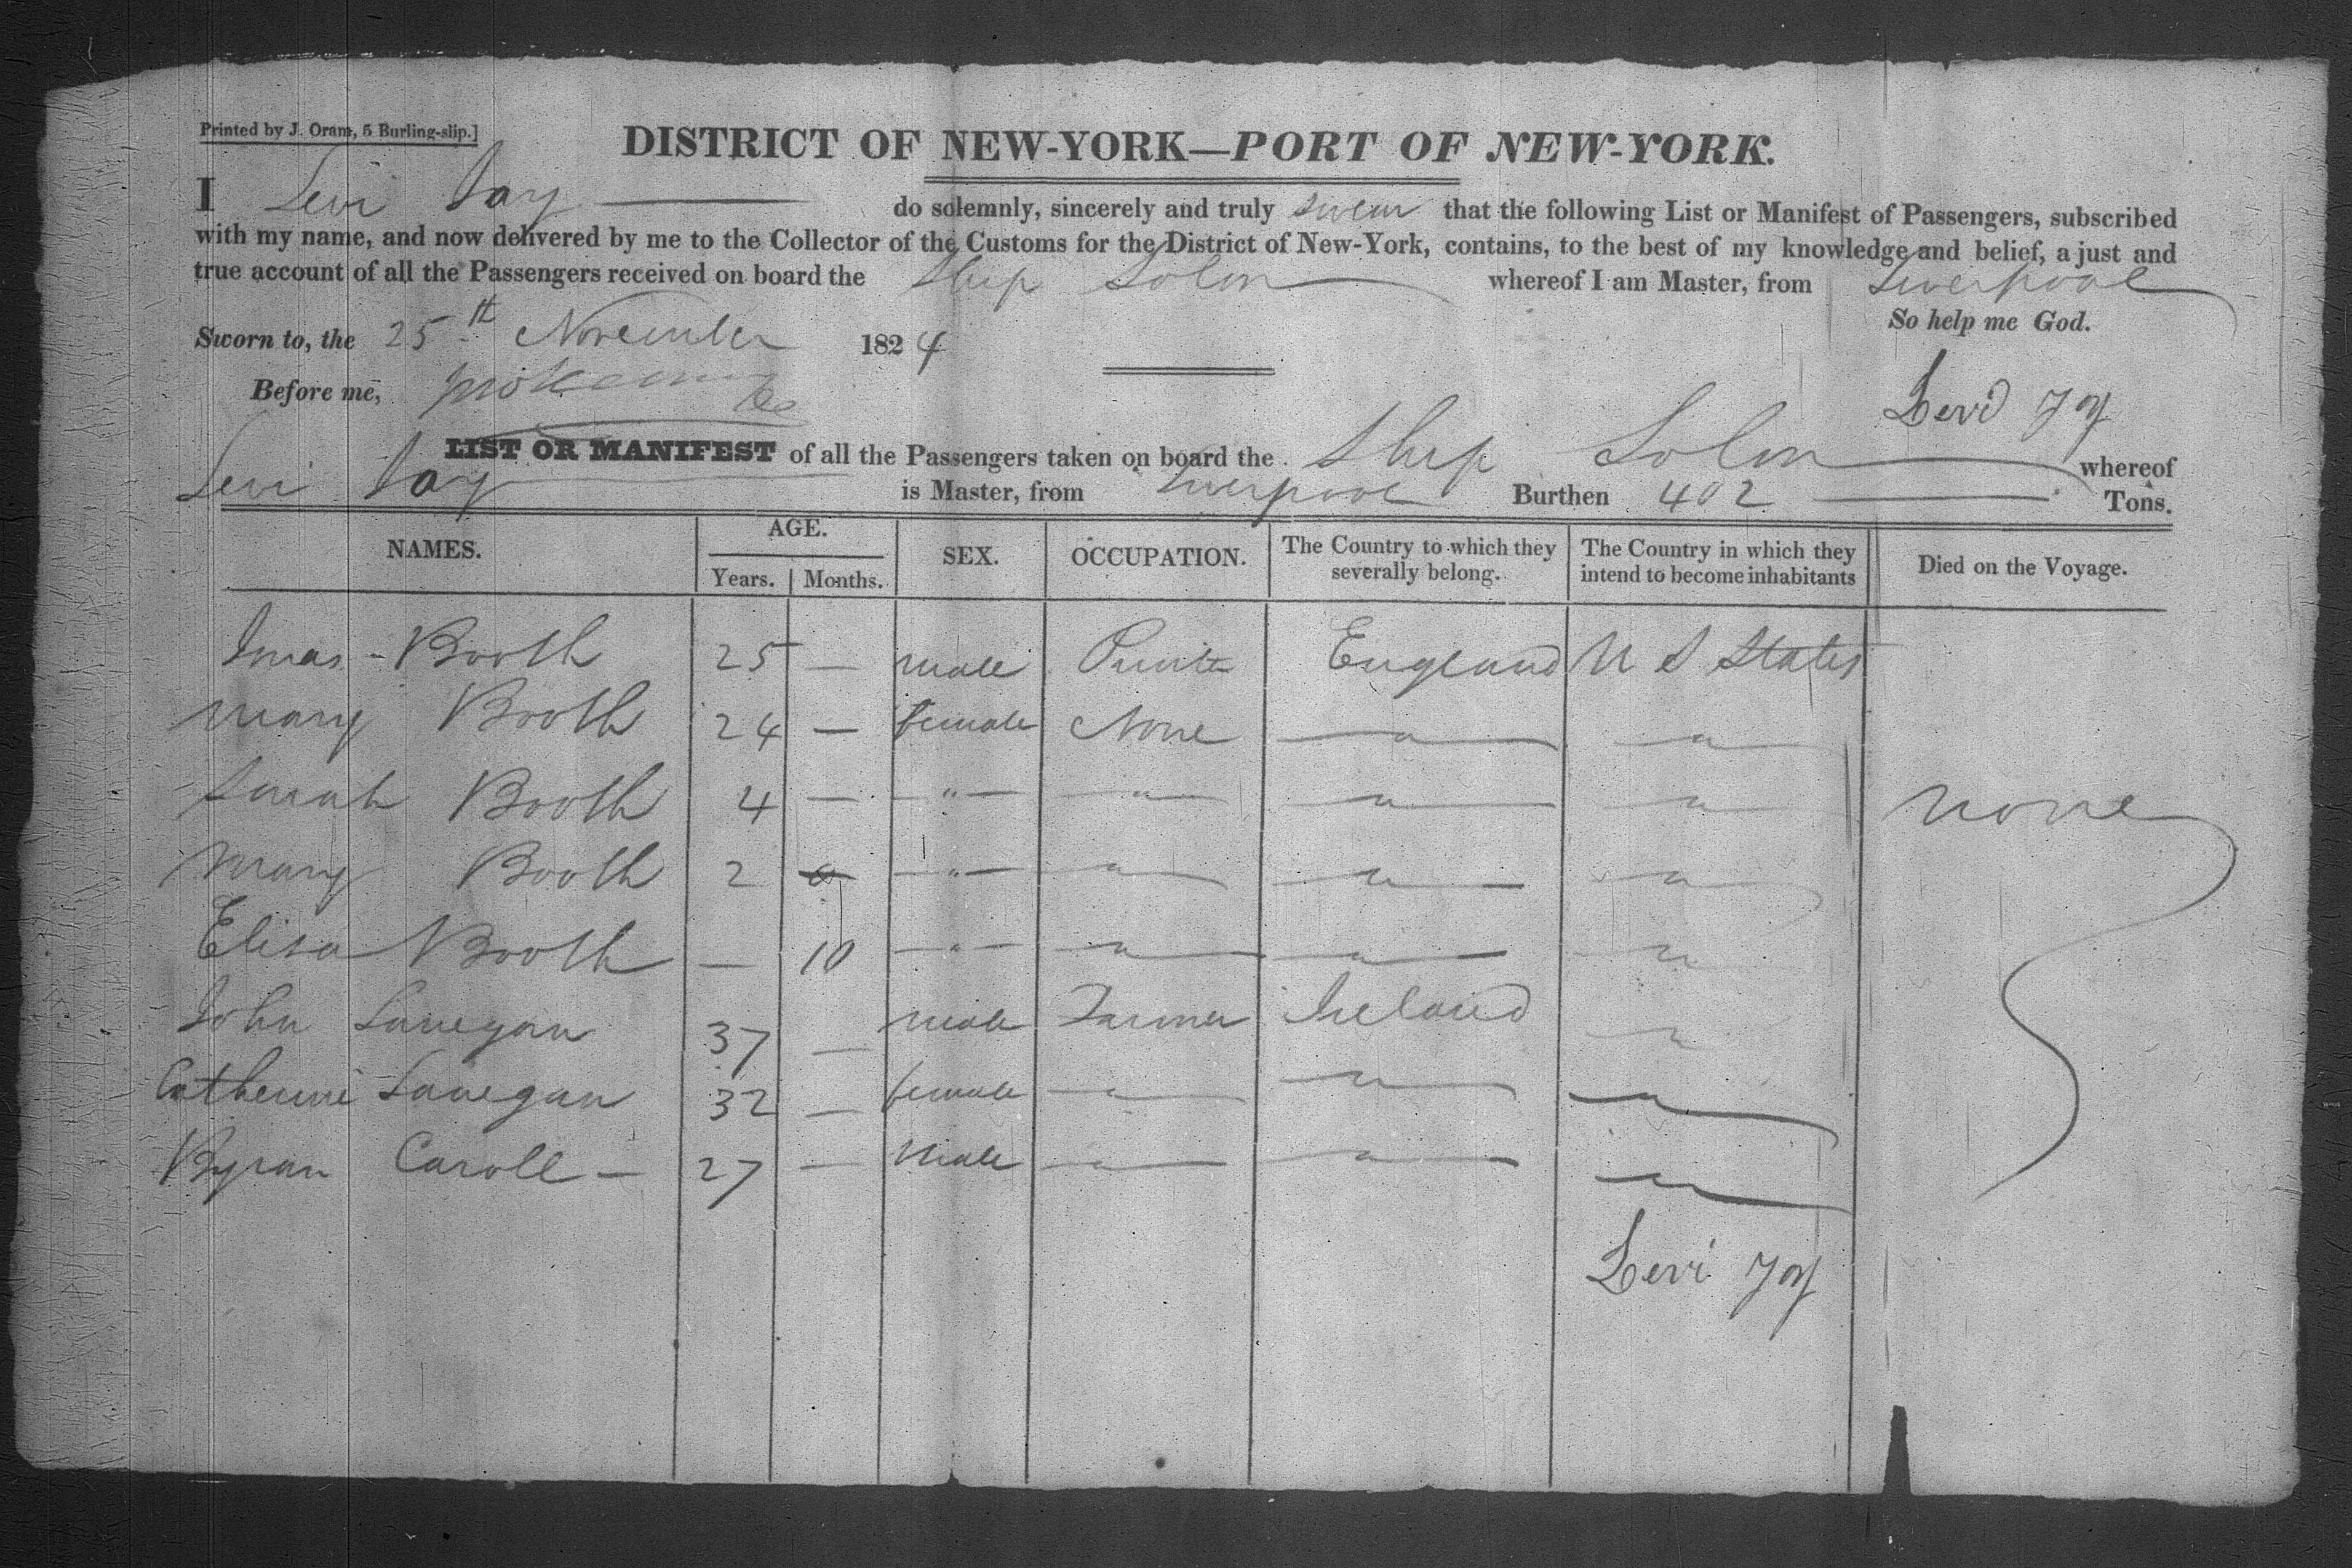 Printed by J. Oram, 5 Burling-slip.]
DISTRICT OF NEW-YORK—PORT OF NEW-YORK.
I Levi Joy do solemnly, sincerely and truly swear that the following List or Manifest of Passengers, subscribed
with my name, and now delivered by me to the Collector of the Customs for the District of New-York, contains, to the best of my knowledge and belief, a just and
true account of all the Passengers received on board the Ship Solon whereof I am Master, from Liverpool
So help me God.
Sworn to, the 25th November 1824
Before me,
Levi Joy
LIST OR MANIFEST of all the Passengers taken on board the Ship Solon whereof
Levi Joy is Master, from Liverpool Burthen 402 Tons.
NAMES. AGE. Years. Months. SEX. OCCUPATION. The Country to which they severally belong. The Country in which they intend to become inhabitants Died on the Voyage.
Booth 25 — male England U S States
Mary Booth 24 — female None " "
Sarah Booth 4 — " " " " none
Mary Booth 2 " " " "
Elisa Booth — 10 " " " "
John Lanegan 37 — male Farmer Ireland "
Catherine Lanegan 32 — female " " "
Byran Caroll — 27 — Male " " "
Levi Joy